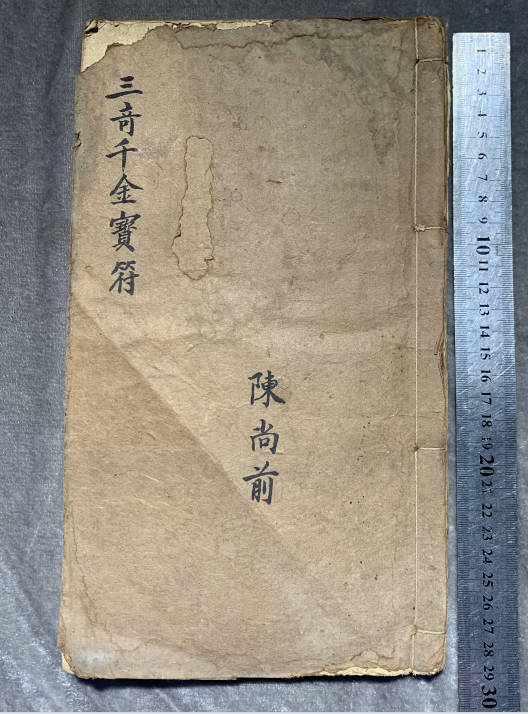 三奇千金寶符
陳尚前
1 2 3 4 5 6 7 8 9 10 11 12 13 14 15 16 17 18 19 20 21 22 23 24 25 26 27 28 29 30